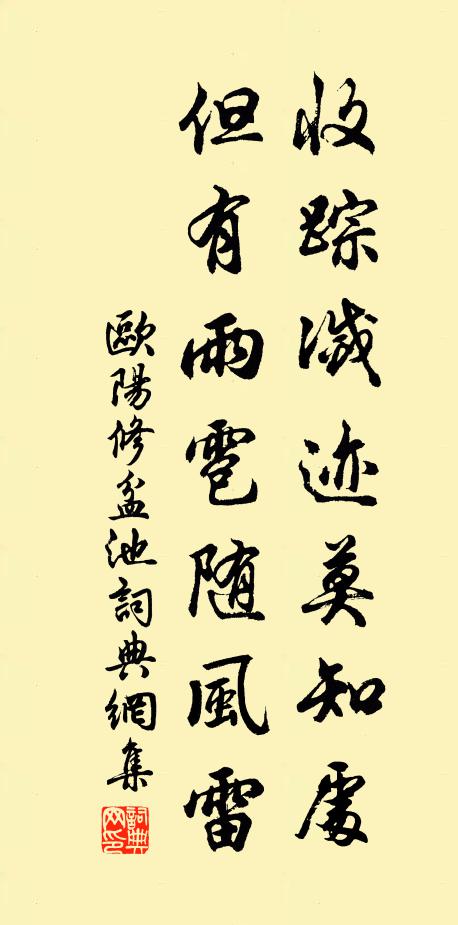 收踪滅迹莫知處
但有雨雹随風雷
歐陽修盆池詞典網集
詞典网印